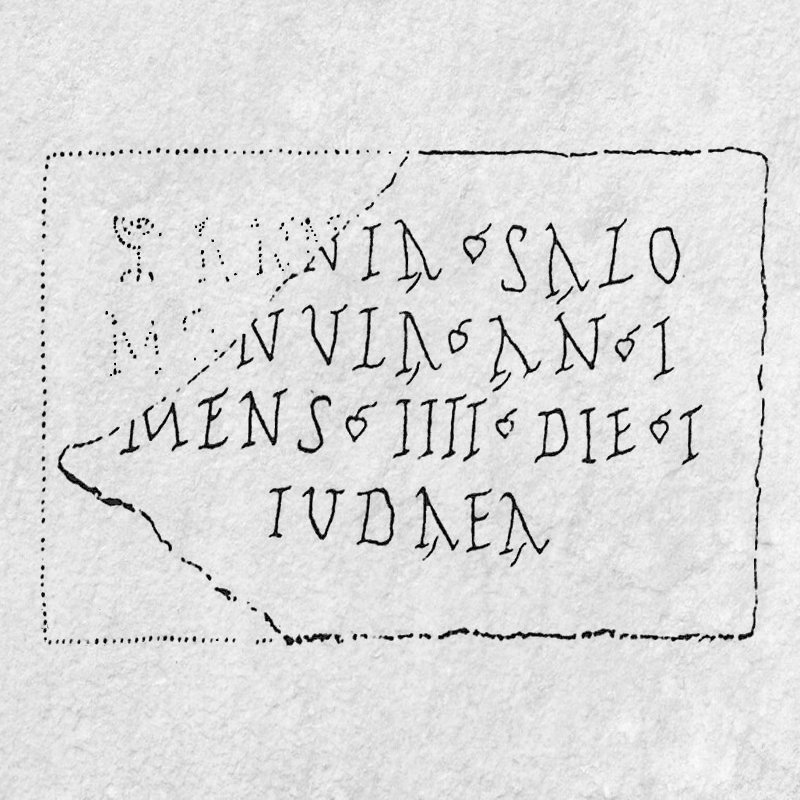 ANNIA · SALO
MONUIA · AN · I
MENS · IIII · DIE · I
IUDAEA